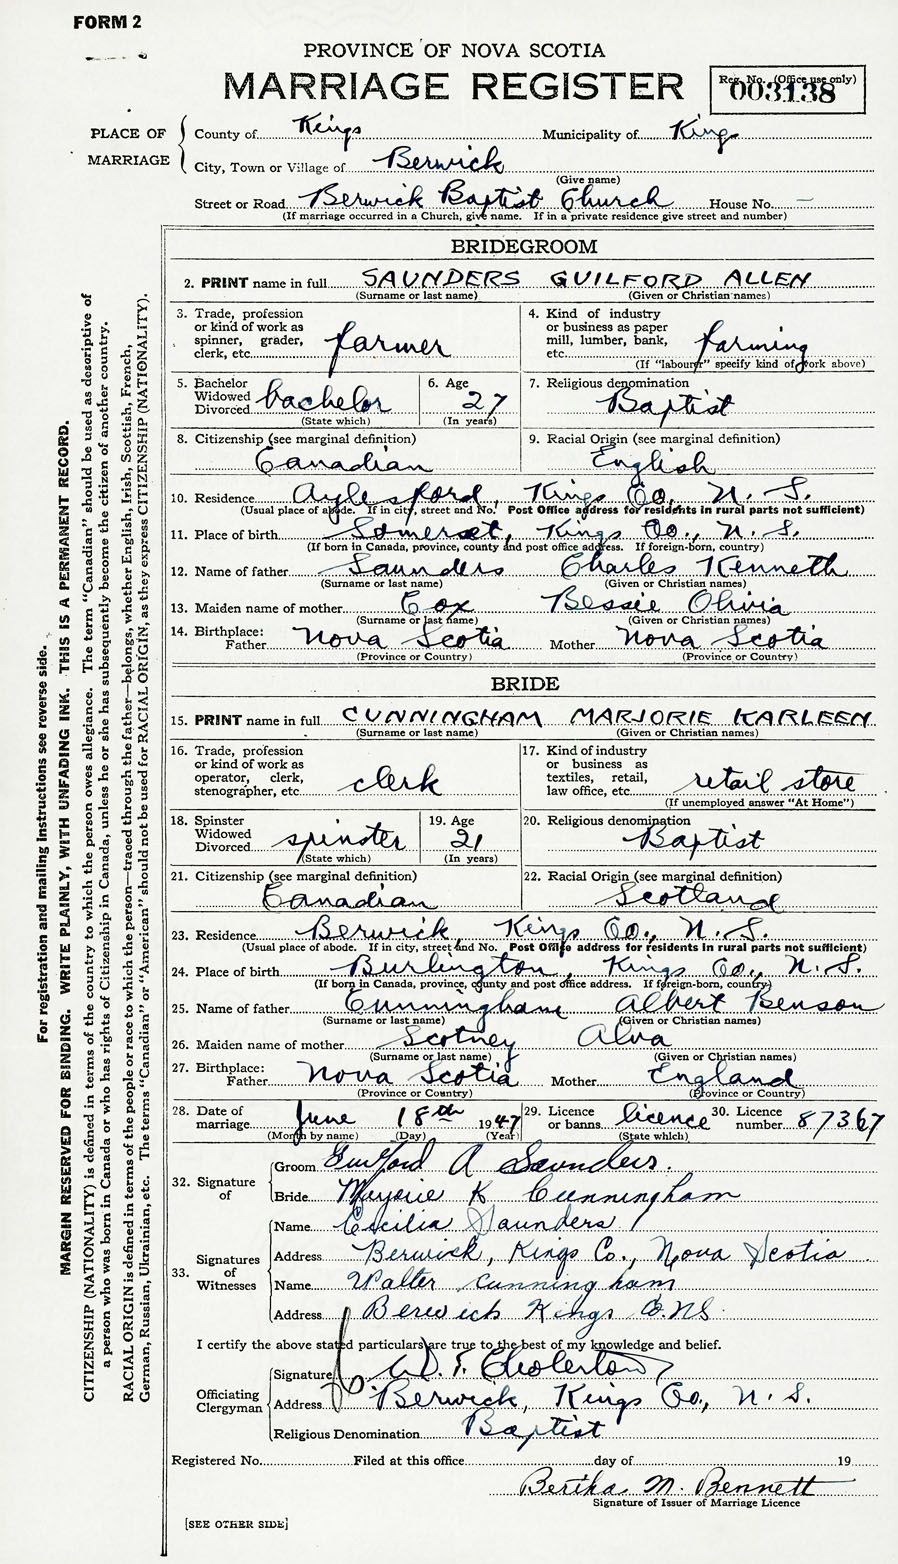 FORM 2
PROVINCE OF NOVA SCOTIA
MARRIAGE REGISTER
Reg. No. (Office use only)
003138
PLACE OF MARRIAGE
County of Kings Municipality of Kings
City, Town or Village of Berwick
(Give name)
Street or Road Berwick Baptist Church House No. –
(If marriage occurred in a Church, give name. If in a private residence give street and number)
BRIDEGROOM
2. PRINT name in full SAUNDERS GUILFORD ALLEN
(Surname or last name) (Given or Christian names)
3. Trade, profession or kind of work as spinner, grader, clerk, etc. farmer
4. Kind of industry or business as paper mill, lumber, bank, etc. farming
(If "labourer" specify kind of work above)
5. Bachelor Widowed Divorced bachelor
(State which)
6. Age 27
(In years)
7. Religious denomination
Baptist
8. Citizenship (see marginal definition)
Canadian
9. Racial Origin (see marginal definition)
English
10. Residence Aylesford, Kings Co, N. S.
(Usual place of abode. If in city, street and No. Post Office address for residents in rural parts not sufficient)
11. Place of birth Somerset, Kings Co., N. S.
(If born in Canada, province, county and post office address. If foreign-born, country)
12. Name of father Saunders Charles Kenneth
(Surname or last name) (Given or Christian names)
13. Maiden name of mother Cox Bessie Olivia
(Surname or last name) (Given or Christian names)
14. Birthplace: Father Nova Scotia Mother Nova Scotia
(Province or Country) (Province or Country)
BRIDE
15. PRINT name in full CUNNINGHAM MARJORIE KARLEEN
(Surname or last name) (Given or Christian names)
16. Trade, profession or kind of work as operator, clerk, stenographer, etc clerk
17. Kind of industry or business as textiles, retail, law office, etc. retail store
(If unemployed answer "At Home")
18. Spinster Widowed Divorced spinster
(State which)
19. Age 21
(In years)
20. Religious denomination
Baptist
21. Citizenship (see marginal definition)
Canadian
22. Racial Origin (see marginal definition)
Scotland
23. Residence Berwick, Kings Co., N. S.
(Usual place of abode. If in city, street and No. Post Office address for residents in rural parts not sufficient)
24. Place of birth Burlington, Kings Co., N. S.
(If born in Canada, province, county and post office address. If foreign-born, country)
25. Name of father Cunningham Albert Benson
(Surname or last name) (Given or Christian names)
26. Maiden name of mother Scotney Alva
(Surname or last name) (Given or Christian names)
27. Birthplace: Father Nova Scotia Mother England
(Province or Country) (Province or Country)
28. Date of marriage June 18th 1947
(Month by name) (Day) (Year)
29. Licence or banns licence
(State which)
30. Licence number 87367
32. Signature of
Groom Guilford A Saunders.
Bride Marjorie K Cunningham
33. Signatures of Witnesses
Name Cecilia Saunders
Address Berwick, Kings Co., Nova Scotia
Name Walter Cunningham
Address Berwick Kings Co. NS.
I certify the above stated particulars are true to the best of my knowledge and belief.
Officiating Clergyman
Signature Cholerton
Address Berwick, Kings Co., N. S.
Religious Denomination Baptist
Registered No. Filed at this office day of 19
Bertha M. Bennett
Signature of Issuer of Marriage Licence
[SEE OTHER SIDE]
For registration and mailing instructions see reverse side.
MARGIN RESERVED FOR BINDING. WRITE PLAINLY, WITH UNFADING INK. THIS IS A PERMANENT RECORD.
CITIZENSHIP (NATIONALITY) is defined in terms of the country to which the person owes allegiance. The term "Canadian" should be used as descriptive of
a person who was born in Canada or who has rights of Citizenship in Canada, unless he or she has subsequently become the citizen of another country.
RACIAL ORIGIN is defined in terms of the people or race to which the person—traced through the father—belongs, whether English, Irish, Scottish, French,
German, Russian, Ukrainian, etc. The terms "Canadian" or "American" should not be used for RACIAL ORIGIN, as they express CITIZENSHIP (NATIONALITY).